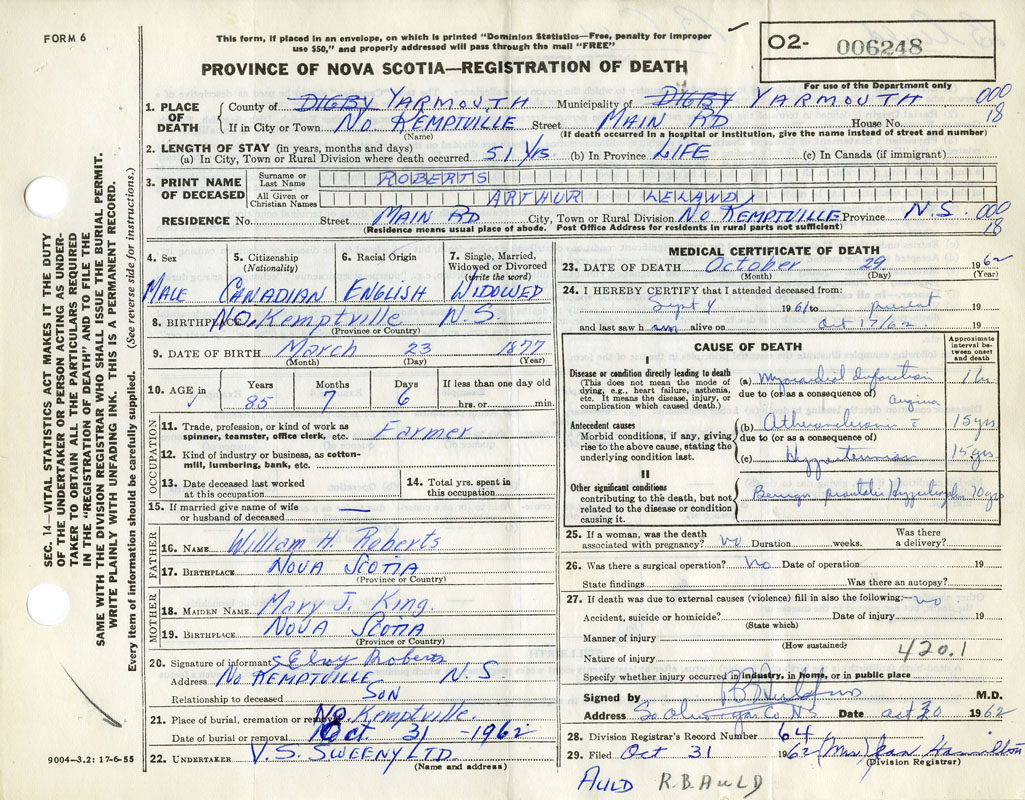 FORM 6
This form, if placed in an envelope, on which is printed "Dominion Statistics—Free, penalty for improper
use $50," and properly addressed will pass through the mail "FREE"
O2- 006248
For use of the Department only
PROVINCE OF NOVA SCOTIA—REGISTRATION OF DEATH
1. PLACE OF DEATH County of DIGBY YARMOUTH Municipality of DIGBY YARMOUTH 000
18
If in City or Town No. KEMPTVILLE Street MAIN RD House No.
(Name) (If death occurred in a hospital or institution, give the name instead of street and number)
2. LENGTH OF STAY (in years, months and days)
(a) In City, Town or Rural Division where death occurred 51 YRS (b) In Province LIFE (c) In Canada (if immigrant)
3. PRINT NAME OF DECEASED Surname or Last Name ROBERTS
All Given or Christian Names ARTHUR LELAND
RESIDENCE No. Street MAIN RD City, Town or Rural Division No KEMPTVILLE Province N.S. 000
18
(Residence means usual place of abode. Post Office Address for residents in rural parts not sufficient)
SEC. 14—VITAL STATISTICS ACT MAKES IT THE DUTY
OF THE UNDERTAKER OR PERSON ACTING AS UNDER-
TAKER TO OBTAIN ALL THE PARTICULARS REQUIRED
IN THE "REGISTRATION OF DEATH" AND TO FILE THE
SAME WITH THE DIVISION REGISTRAR WHO SHALL ISSUE THE BURIAL PERMIT.
WRITE PLAINLY WITH UNFADING INK. THIS IS A PERMANENT RECORD.
Every item of information should be carefully supplied. (See reverse side for instructions.)
4. Sex 5. Citizenship (Nationality) 6. Racial Origin 7. Single, Married, Widowed or Divorced (write the word)
MALE CANADIAN ENGLISH WIDOWED
8. BIRTHPLACE No. Kemptville N.S.
(Province or Country)
9. DATE OF BIRTH March 23 1877
(Month) (Day) (Year)
10. AGE in Years Months Days If less than one day old
85 7 6 hrs. or min.
OCCUPATION
11. Trade, profession, or kind of work as
spinner, teamster, office clerk, etc. Farmer
12. Kind of industry or business, as cotton-
mill, lumbering, bank, etc.
13. Date deceased last worked
at this occupation
14. Total yrs. spent in
this occupation
15. If married give name of wife
or husband of deceased —
FATHER
16. NAME William H. Roberts
17. BIRTHPLACE NOVA SCOTIA
(Province or Country)
MOTHER
18. MAIDEN NAME Mary J. King.
19. BIRTHPLACE NOVA SCOTIA
(Province or Country)
20. Signature of informant Elroy Roberts
Address No KEMPTVILLE N.S.
Relationship to deceased SON
21. Place of burial, cremation or removal No. Kemptville.
Date of burial or removal Oct. 31 - 1962
22. UNDERTAKER V.S. SWEENY LTD.
(Name and address)
9004—3.2: 17-6-55
MEDICAL CERTIFICATE OF DEATH
23. DATE OF DEATH October 29 1962
(Month) (Day) (Year)
24. I HEREBY CERTIFY that I attended deceased from:
Sept 4 1961 to present 19
and last saw him alive on Oct 17/62. 19
CAUSE OF DEATH
Approximate interval between onset and death
I
Disease or condition directly leading to death
(This does not mean the mode of
dying, e.g., heart failure, asthenia,
etc. It means the disease, injury, or
complication which caused death.)
(a) Myocardial Infarction 1 hr.
due to (or as a consequence of)
angina
Antecedent causes
Morbid conditions, if any, giving
rise to the above cause, stating the
underlying condition last.
(b) 15 yrs
due to (or as a consequence of)
(c) 15 yrs
II
Other significant conditions
contributing to the death, but not
related to the disease or condition
causing it.
Benign prostatic Hypertrophy 10 yrs
25. If a woman, was the death
associated with pregnancy? no Duration weeks. Was there
a delivery?
26. Was there a surgical operation? No Date of operation 19
State findings Was there an autopsy?
27. If death was due to external causes (violence) fill in also the following:— no
Accident, suicide or homicide? Date of injury 19
(State which)
Manner of injury
(How sustained)
Nature of injury 420.1
Specify whether injury occurred in industry, in home, or in public place
Signed by M.D.
Address Yar Co NS Date Oct 30 1962
28. Division Registrar's Record Number 64
29. Filed Oct 31 1962 (Mrs) Jean Hamilton
(Division Registrar)
AULD R.B. AULD